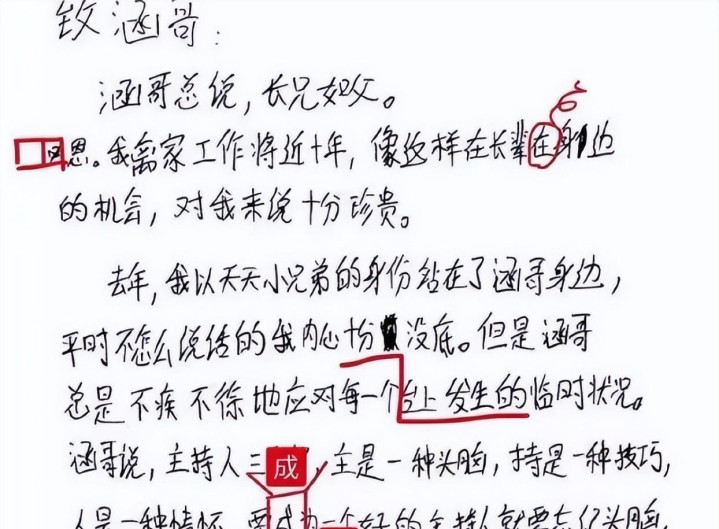 致涵哥：
涵哥总说，长兄如父。
恩。我离家工作将近十年，像这样在长辈在身边
的机会，对我来说十分珍贵。
去年，我以天天小兄弟的身份站在了涵哥身边，
平时不怎么说话的我内心十分没底。但是涵哥
总是不疾不徐地应对每一个台上发生的临时状况。
涵哥说，主持人三成，主是一种头脑，持是一种技巧，
人是一种情怀，要成为一个好的主持人就要在亿头脑